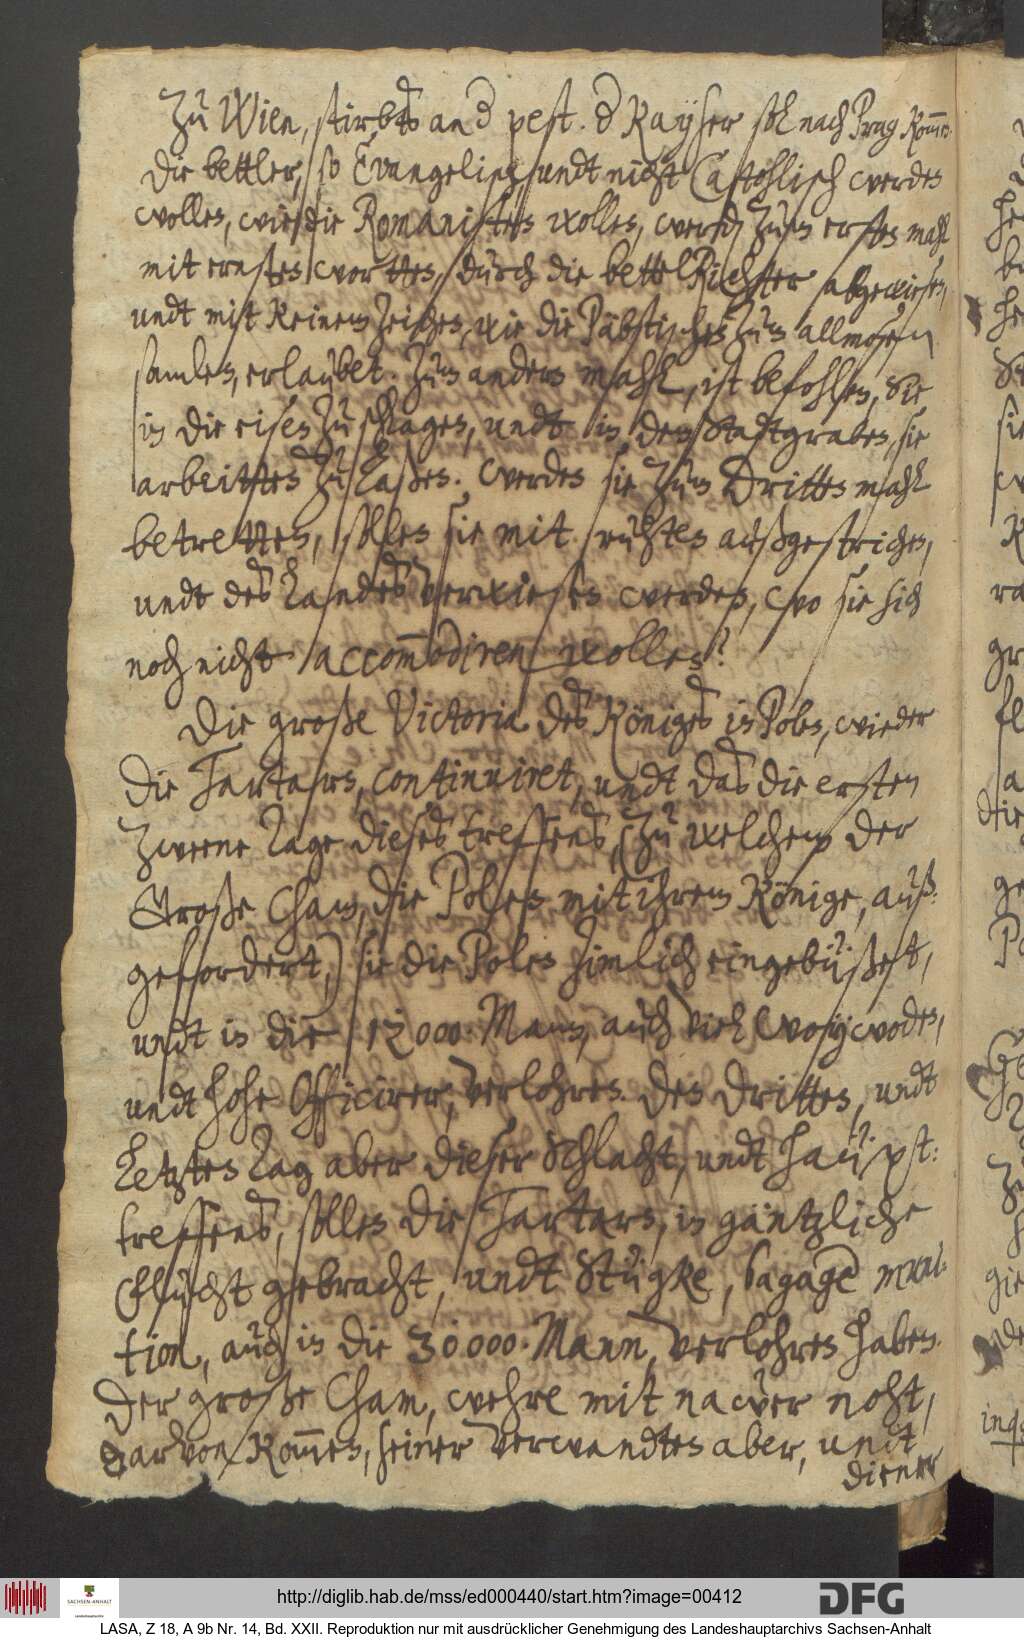 Zu Wien, stirbts an d pest. d Kayser sol nach Prag Komen.
Die bettler, so Evangelisch, undt nicht Catohlisch werden
wollen, wie die Romanisten wollen, werden zum ersten mahl
mit ernsten worten, durch die bettelRichter abgewiesen,
undt mit Keinem Zeichen, wie die Päbstischen, zum allmosen
samlen, erlaubet. Zum andern mahl, ist befohlen, Sie
in die eisen zu schlagen, undt in den Stadtgraben, sie
arbeitten zu laßen. Werden sie zum Dritten mahl
betretten, sollen sie mit ruhten außgestrichen,
undt des Landes verwiesen werden, wo sie sich
noch nicht accommodiren wollen?
Die große Victoria des Königes in Polen, wieder
die Tartarn, continuiret, undt das die ersten
Zweene Tage dieses treffens, (zu welchem der
Große Cham, die Polen mit ihrem Könige, auß-
geffordert,) sie die Polen zimlich eingebüßet,
undt in die 12000. Mann, auch viel Woywoden,
undt hohe Officirer, verlohren. Den dritten, undt
letzten Tag aber dieser Schlacht, undt Haupt:
treffens, sollen die Tartarn, in gäntzliche
Flucht gebracht, undt Stügke, bagage muni-
tion, auch in die 30000. Mann, verlohren haben.
Der große Cham, wehre mit nawer noht,
darvon Kommen, seiner Verwandten aber, undt
diener
http://diglib.hab.de/mss/ed000440/start.htm?image=00412
DFG
SACHSEN-ANHALT
LASA, Z 18, A 9b Nr. 14, Bd. XXII. Reproduktion nur mit ausdrücklicher Genehmigung des Landeshauptarchivs Sachsen-Anhalt